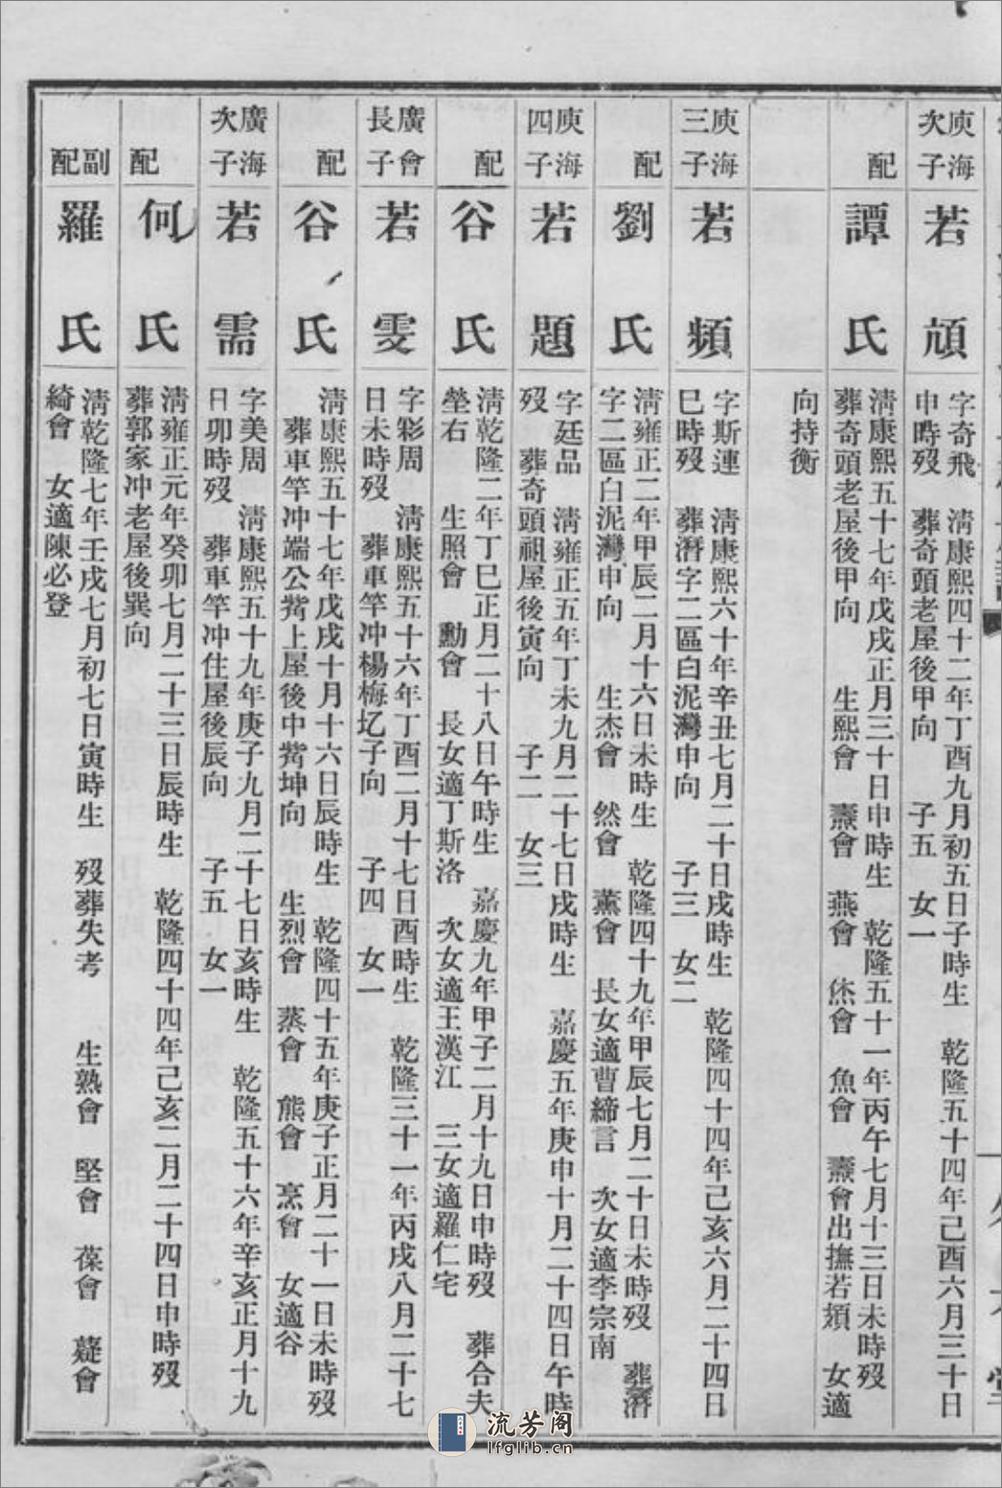 庚海次子
若頎
字奇飛　清康熙四十二年丁酉九月初五日子時生　乾隆五十四年己酉六月三十日
申時歿　葬奇頭老屋後甲向　子五　女一
配
譚氏
清康熙五十七年戊戌正月三十日申時生　乾隆五十一年丙午七月十三日未時歿
葬奇頭老屋後甲向　生熙會　燾會　燕會　烋會　魚會　燾會出撫若頯　女適
向持衡
庚海三子
若頻
字斯連　清康熙六十年辛丑七月二十日戌時生　乾隆四十四年己亥六月二十四日
巳時歿　葬潛字二區白泥灣申向　子三　女二
配
劉氏
清雍正二年甲辰二月十六日未時生　乾隆四十九年甲辰七月二十日未時歿　葬潛
字二區白泥灣申向　生杰會　然會　薰會　長女適曹締言　次女適李宗南
庚海四子
若題
字廷品　清雍正五年丁未九月二十七日戌時生　嘉慶五年庚申十月二十四日午時
歿　葬奇頭祖屋後寅向　子二　女三
配
谷氏
清乾隆二年丁巳正月二十八日午時生　嘉慶九年甲子二月十九日申時歿　葬合夫
塋右　生照會　勳會　長女適丁斯洛　次女適王漢江　三女適羅仁宅
廣會長子
若雯
字彩周　清康熙五十六年丁酉二月十七日酉時生　乾隆三十一年丙戌八月二十七
日未時歿　葬車竿冲楊梅圪子向　子四　女一
配
谷氏
清康熙五十七年戊戌十月十六日辰時生　乾隆四十五年庚子正月二十一日未時歿
葬車竿冲端公觜上屋後中觜坤向　生烈會　蒸會　熊會　烹會　女適谷
廣海次子
若需
字美周　清康熙五十九年庚子九月二十七日亥時生　乾隆五十六年辛亥正月十九
日卯時歿　葬車竿冲住屋後辰向　子五　女一
配
何氏
清雍正元年癸卯七月二十三日辰時生　乾隆四十四年己亥二月二十四日申時歿
葬郭家冲老屋後巽向
副配
羅氏
清乾隆七年壬戌七月初七日寅時生　歿葬失考　生熟會　堅會　葆會　薿會
綺會　女適陳必登
流芳阁
lfglib.cn